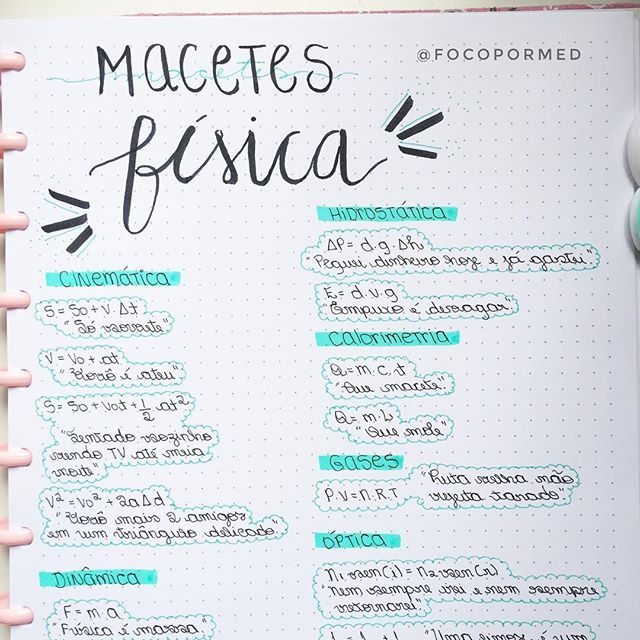 MACETES
@FOCOPORMED
física
CINEMÁTICA
S = So + V.Δt
"Só sorvete"
V = Vo + at
"Vovô é ateu"
S = So + Vot + 1/2 at²
"Sentado sozinho
vendo TV até meia
noite"
V² = Vo² + 2aΔd
"Vovô mais 2 amigos
em um triângulo delicado"
DINÂMICA
F = m.a
"Física é massa"
HIDROSTÁTICA
ΔP = d.g.Δh
"Peguei dinheiro hoje e já gastei"
E = d.v.g
"Empuxo é devagar"
CALORIMETRIA
Q = m.c.t
"Que macete"
Q = m.L
"Que mole"
GASES
P.V = n.R.T
"Puta velha não
rejeita tarado"
ÓPTICA
n₁ sen(i) = n₂ sen(r)
"nem sempre irei e nem sempre
retornarei"
"Uma é um